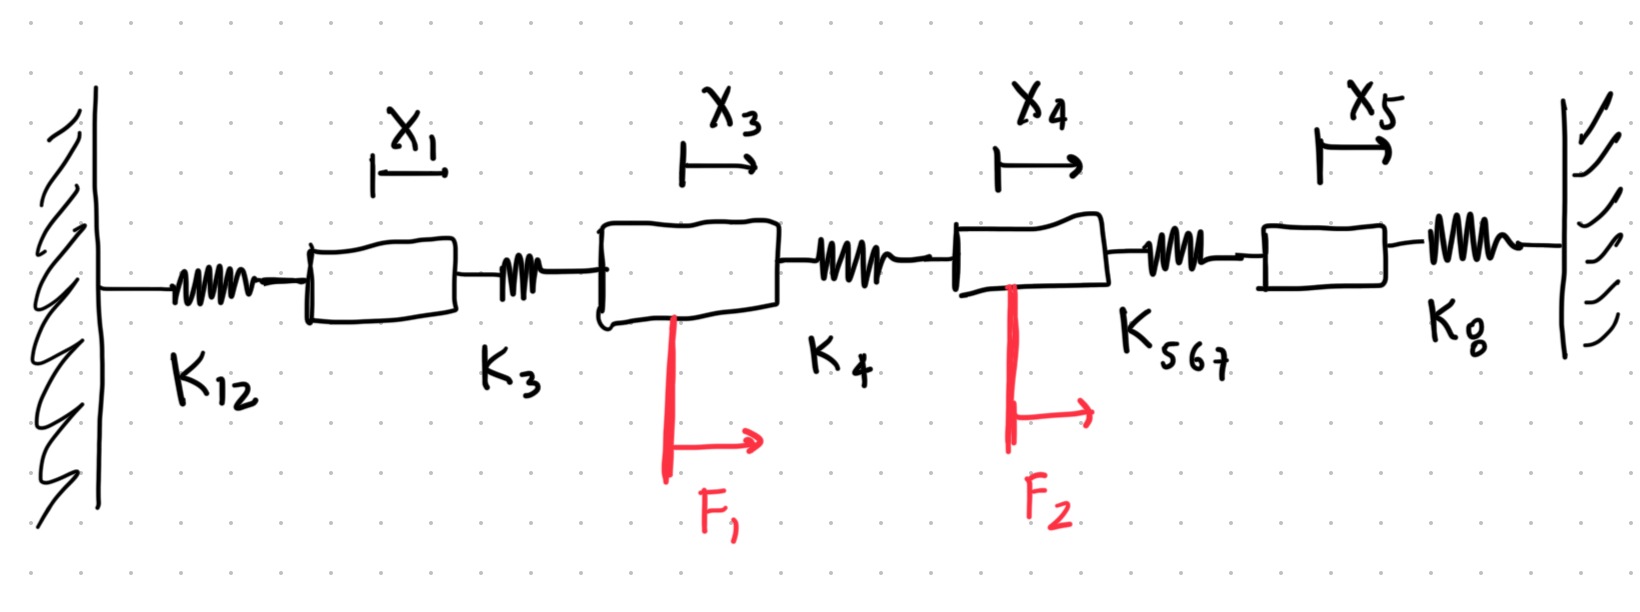 X₁
X₃
X₄
X₅
K₁₂
K₃
K₄
K₅₆₇
K₈
F₁
F₂